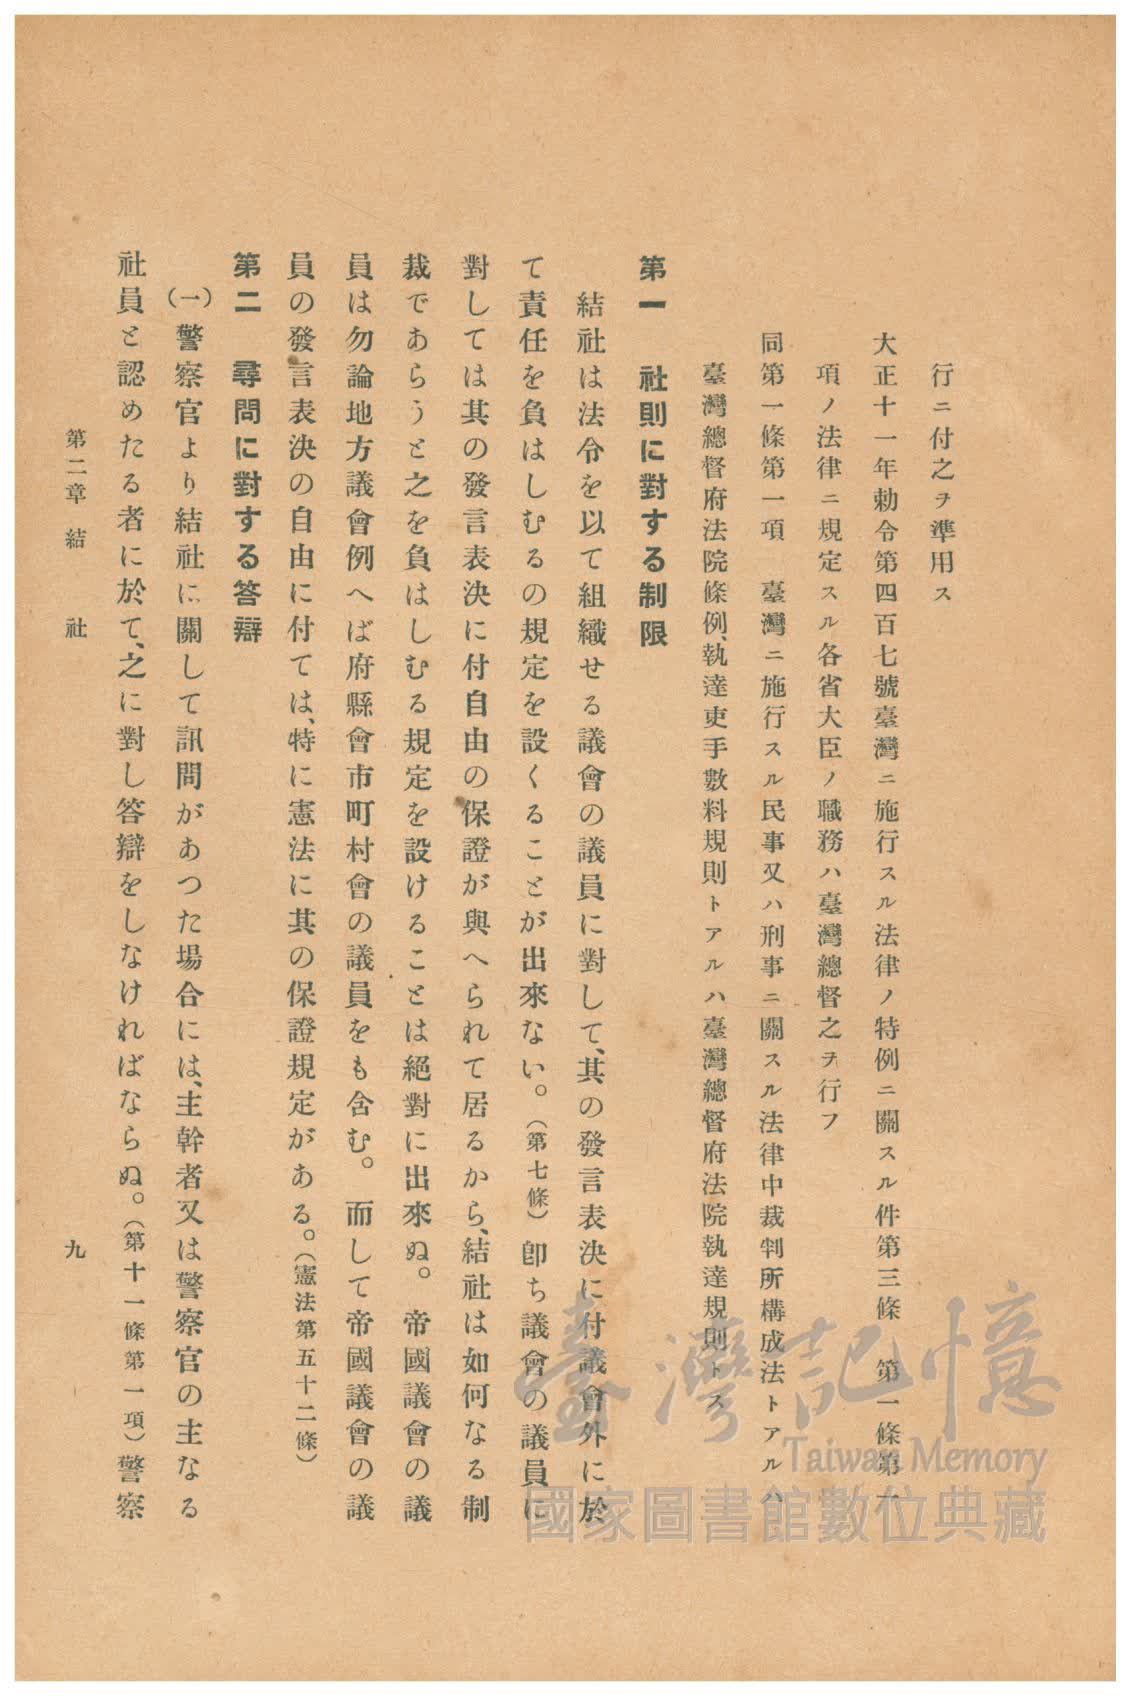 行ニ付之ヲ準用ス
大正十一年勅令第四百七號臺灣ニ施行スル法律ノ特例ニ關スル件第三條　第一條第一
項ノ法律ニ規定スル各省大臣ノ職務ハ臺灣總督之ヲ行フ
同第一條第一項　臺灣ニ施行スル民事又ハ刑事ニ關スル法律中裁判所構成法トアルハ
臺灣總督府法院條例、執達吏手數料規則トアルハ臺灣總督府法院執達規則トス
第一　社則に對する制限
結社は法令を以て組織せる議會の議員に對して、其の發言表決に付議會外に於
て責任を負はしむるの規定を設くることが出來ない。（第七條）卽ち議會の議員に
對しては其の發言表決に付自由の保證が與へられて居るから、結社は如何なる制
裁であらうと之を負はしむる規定を設けることは絕對に出來ぬ。帝國議會の議
員は勿論地方議會例へば府縣會市町村會の議員をも含む。而して帝國議會の議
員の發言表決の自由に付ては、特に憲法に其の保證規定がある。（憲法第五十二條）
第二　尋問に對する答辯
（一）警察官より結社に關して訊問があつた場合には、主幹者又は警察官の主なる
社員と認めたる者に於て、之に對し答辯をしなければならぬ。（第十一條第一項）警察
第二章　結　社
九
臺灣記憶
Taiwan Memory
國家圖書館數位典藏